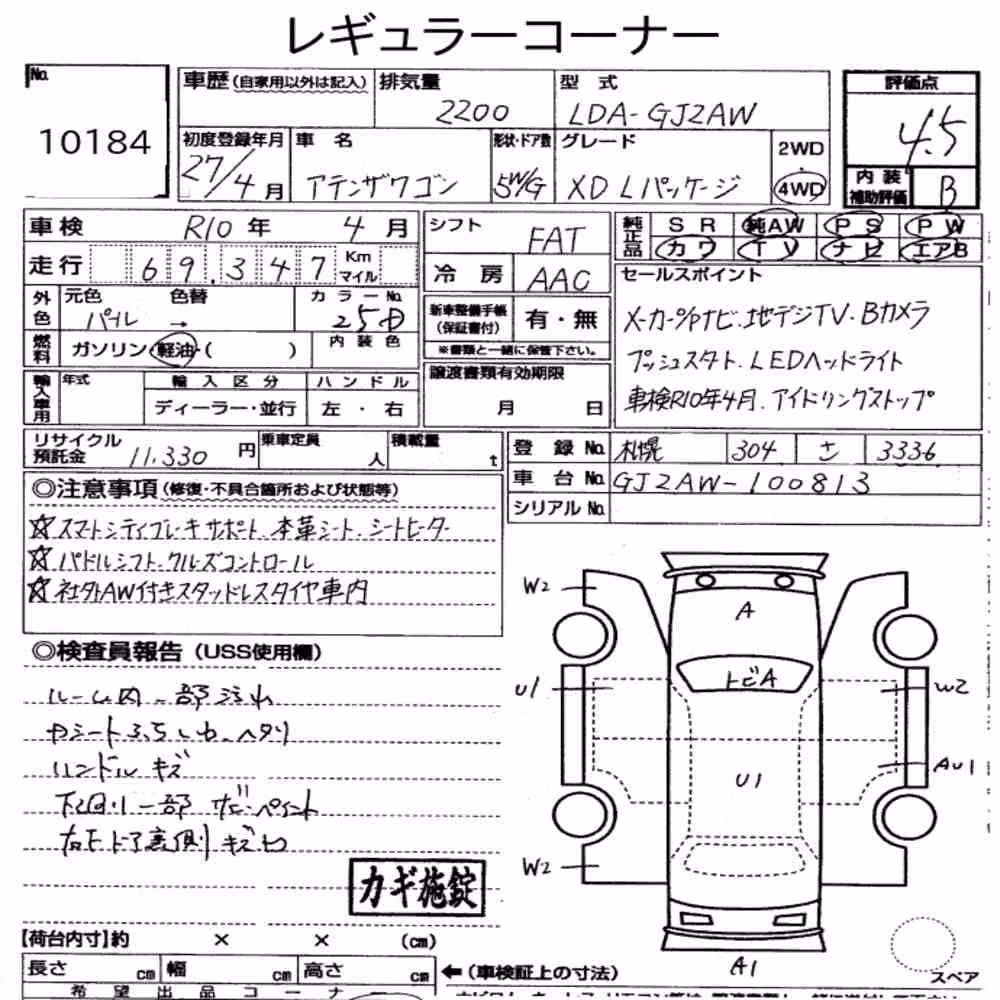 レギュラーコーナー
No.
10184
車歴(自家用以外は記入)
排気量
2200
型式
LDA-GJ2AW
評価点
4.5
内装補助評価
B
初度登録年月
27/4月
車名
アテンザワゴン
形状・ドア数
5W/G
グレード
XD Lパッケージ
2WD
4WD
車検
R10年4月
シフト
FAT
純正品
SR 純AW PS PW
カワ TV ナビ エアB
走行
69,347
Km
マイル
冷房
AAC
セールスポイント
メーカーOPナビ.地デジTV.Bカメラ
プッシュスタート.LEDヘッドライト
車検R10年4月.アイドリングストップ
外色
元色
パール
色替
→
カラーNo.
25D
新車整備手帳
(保証書付)
有・無
※書類と一緒に保管下さい。
燃料
ガソリン・軽油・( )
内装色
輸入車用
年式
輸入区分
ディーラー・並行
ハンドル
左・右
譲渡書類有効期限
月 日
リサイクル預託金
11,330円
乗車定員
人
積載量
t
登録No.
札幌 304 さ 3336
車台No.
GJ2AW-100813
シリアルNo.
◎注意事項(修復・不具合箇所および状態等)
☆スマートシティブレーキサポート.本革シート.シートヒーター
☆パドルシフト.クルーズコントロール
☆社外AW付きスタッドレスタイヤ車内
◎検査員報告(USS使用欄)
ルーム内一部汚れ
ハンドルキズ
下回り一部サビ・ペイント
カギ施錠
W2
A
トビA
U1
W2
AU1
U1
W2
A1
スペア
【荷台内寸】約 × × (cm)
長さ cm 幅 cm 高さ cm
←(車検証上の寸法)
希望出品コーナー